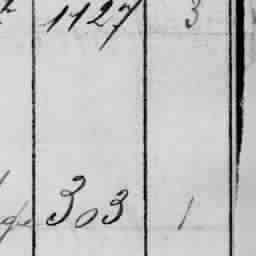 1127 3
303 1